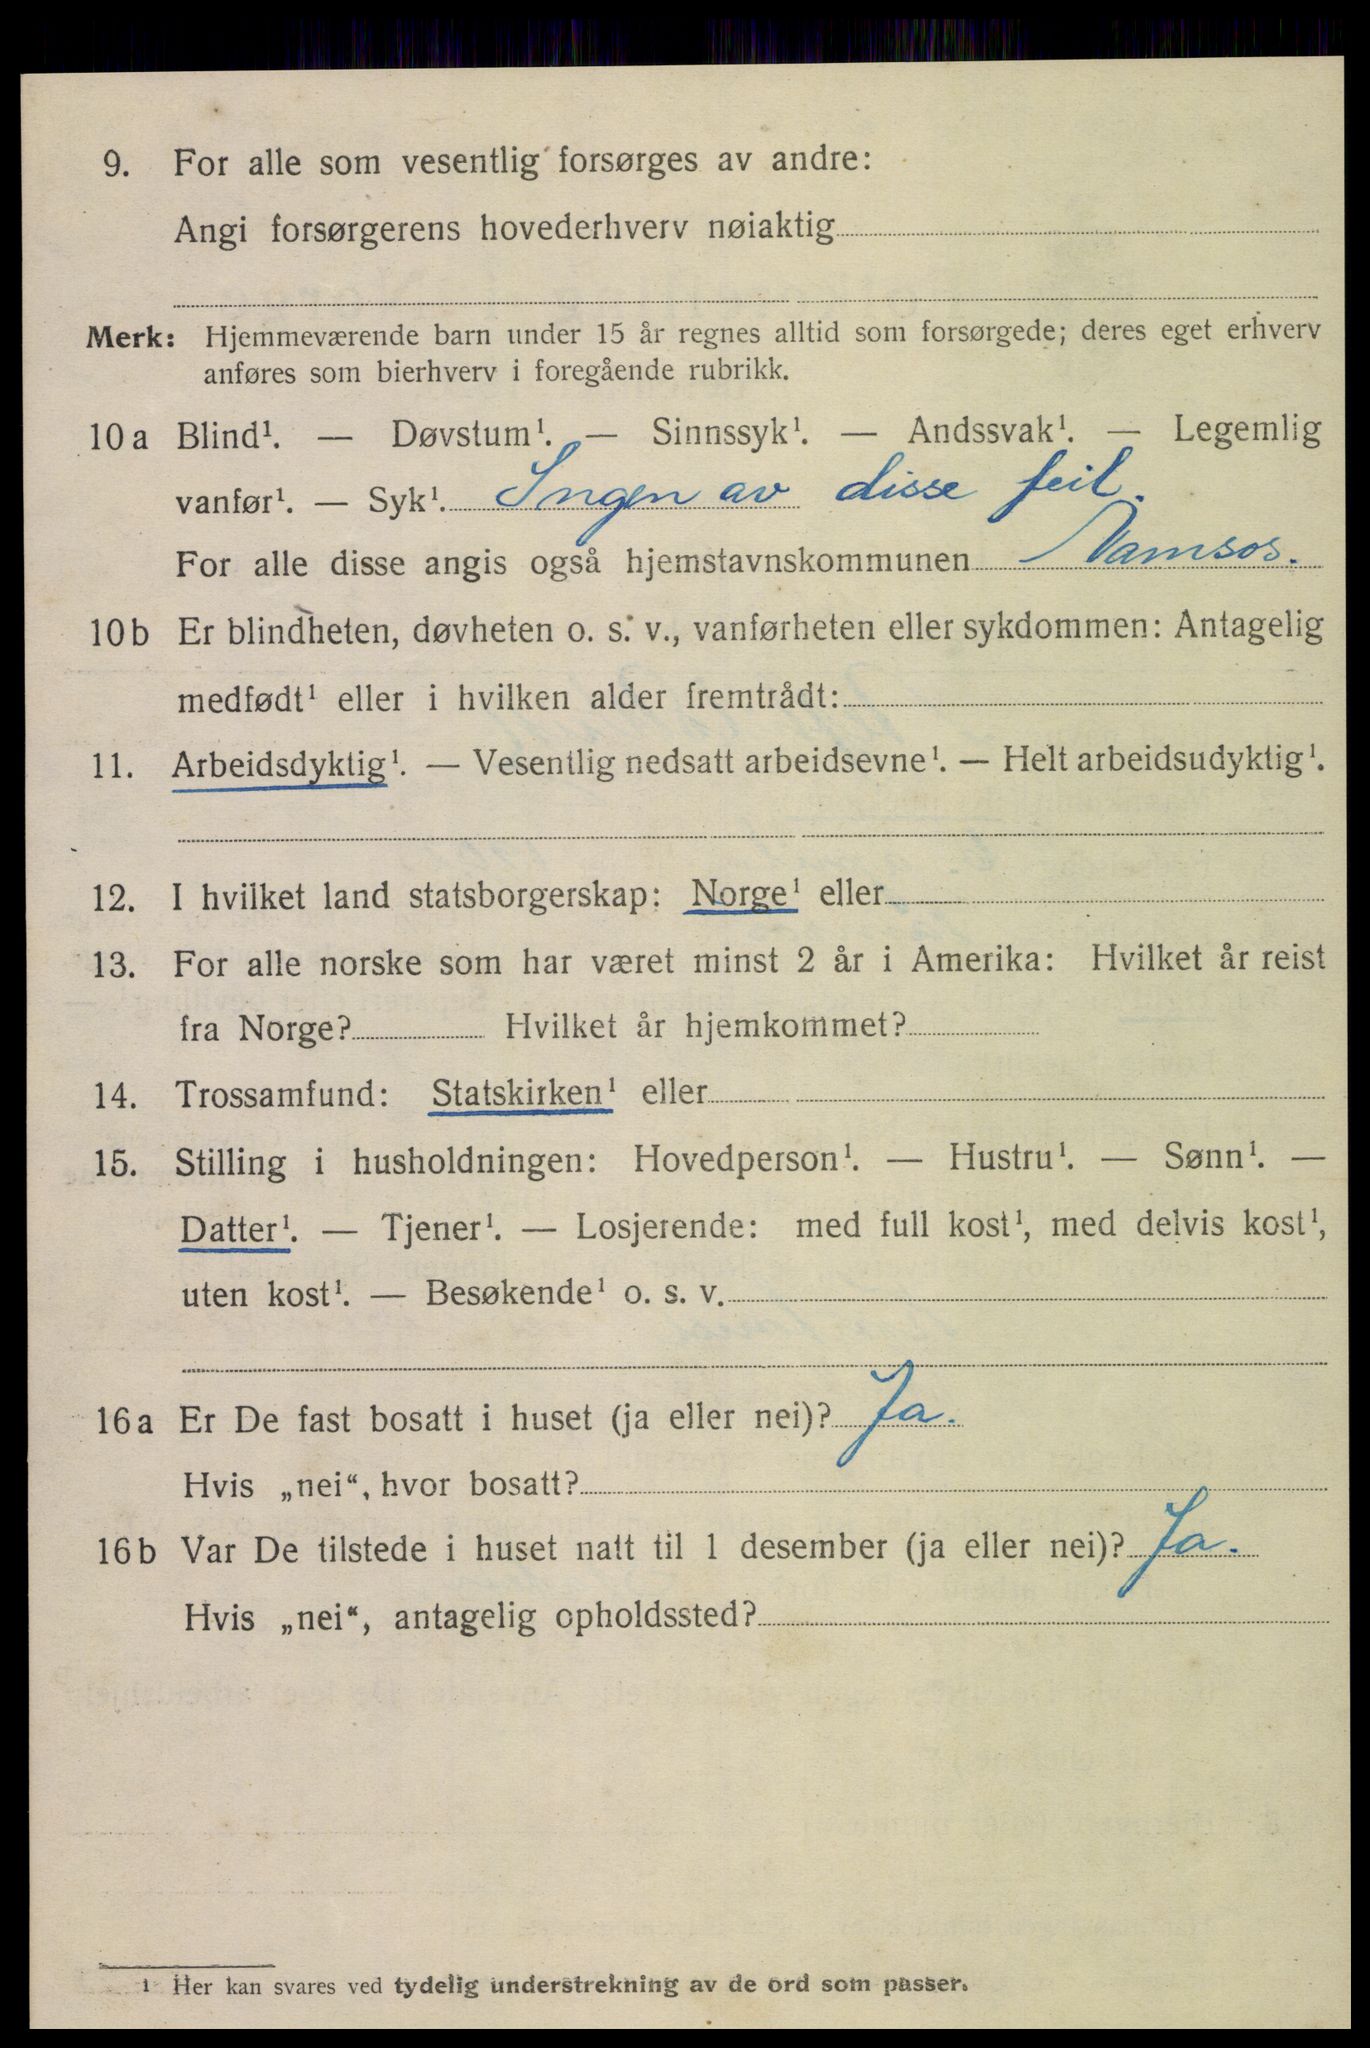 9. For alle som vesentlig forsørges av andre:
Angi forsørgerens hovederhverv nøiaktig
Merk: Hjemmeværende barn under 15 år regnes alltid som forsørgede; deres eget erhverv
anføres som bierhverv i foregående rubrikk.
10 a Blind¹. — Døvstum¹. — Sinnssyk¹. — Andssvak¹. — Legemlig
vanfør¹. — Syk¹. Ingen av disse feil.
For alle disse angis også hjemstavnskommunen Namsos.
10 b Er blindheten, døvheten o. s. v., vanførheten eller sykdommen: Antagelig
medfødt¹ eller i hvilken alder fremtrådt:
11. Arbeidsdyktig¹. — Vesentlig nedsatt arbeidsevne¹. — Helt arbeidsudyktig¹.
12. I hvilket land statsborgerskap: Norge¹ eller
13. For alle norske som har været minst 2 år i Amerika: Hvilket år reist
fra Norge? Hvilket år hjemkommet?
14. Trossamfund: Statskirken¹ eller
15. Stilling i husholdningen: Hovedperson¹. — Hustru¹. — Sønn¹. —
Datter¹. — Tjener¹. — Losjerende: med full kost¹, med delvis kost¹,
uten kost¹. — Besøkende¹ o. s. v.
16 a Er De fast bosatt i huset (ja eller nei)? Ja.
Hvis „nei“, hvor bosatt?
16 b Var De tilstede i huset natt til 1 desember (ja eller nei)? Ja.
Hvis „nei“, antagelig opholdssted?
¹ Her kan svares ved tydelig understrekning av de ord som passer.